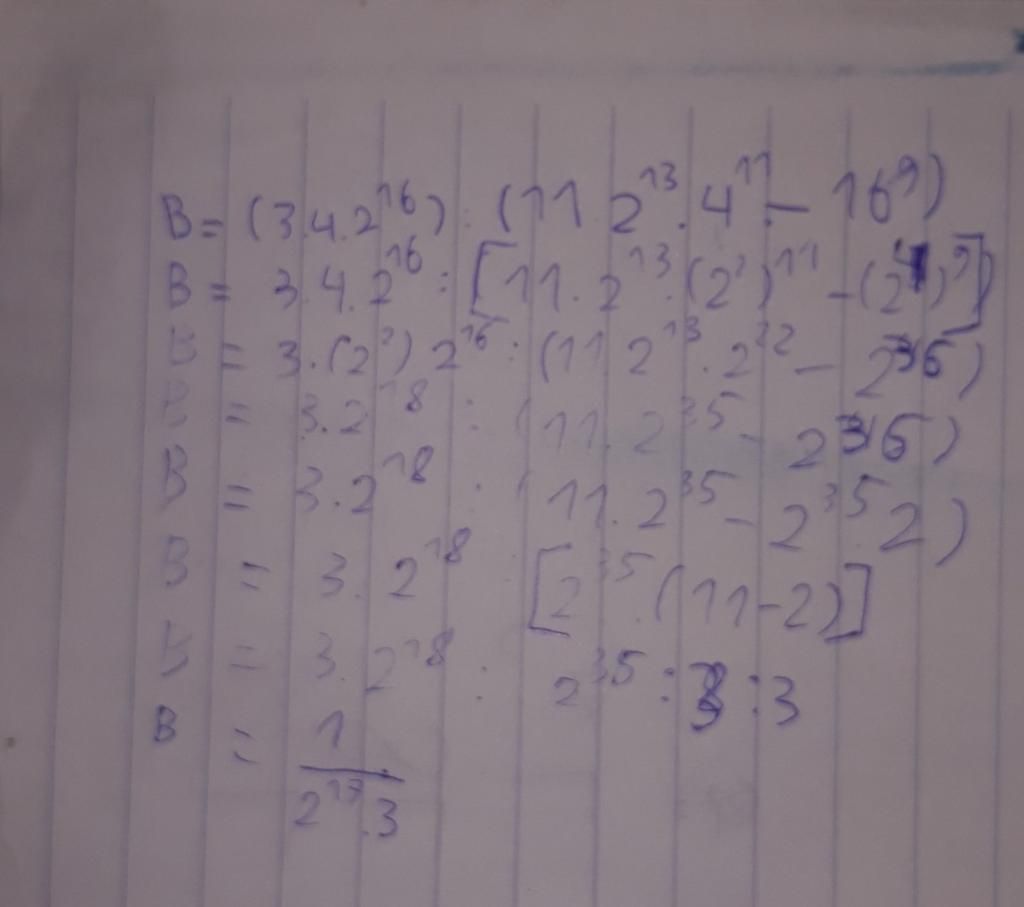 B = (3.4.2^16) : (11.2^13.4^11 - 16^9)
B = 3.4.2^16 : [11.2^13.(2^2)^11 - (2^4)^9]
B = 3.(2^2)2^16 : (11.2^13.2^22 - 2^36)
B = 3.2^18 : (11.2^35 - 2^36)
B = 3.2^18 : (11.2^35 - 2^35.2)
B = 3.2^18 : [2^35.(11-2)]
B = 3.2^18 : 2^35 : 3 : 3
B = 1/(2^17.3)